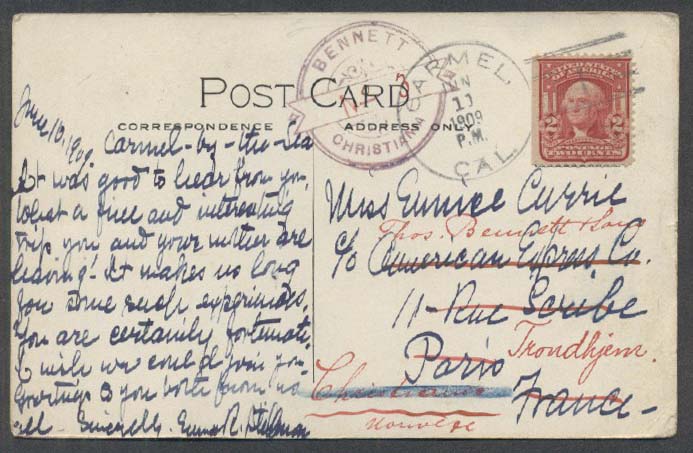 POST CARD
CORRESPONDENCE
ADDRESS ONLY
BENNETT
CHRISTIANIA
CARMEL,
JUN
11
1909
P.M.
CAL.
UNITED STATES
OF AMERICA
2 2
POSTAGE
TWO CENTS
June 10, 1909.
Carmel-by-the-Sea
It was good to hear from you.
What a fine and interesting
trip you and your mother are
having! It makes us long
for some such experiences.
You are certainly fortunate.
I wish we could join you.
Greetings to you both from us
all. Sincerely. Emma R.
Miss Eunice Currie
Thos. Bennett & Sons
c/o American Express Co.
11-Rue Scribe
Paris
Trondhjem.
Christiania
France-
Norvège